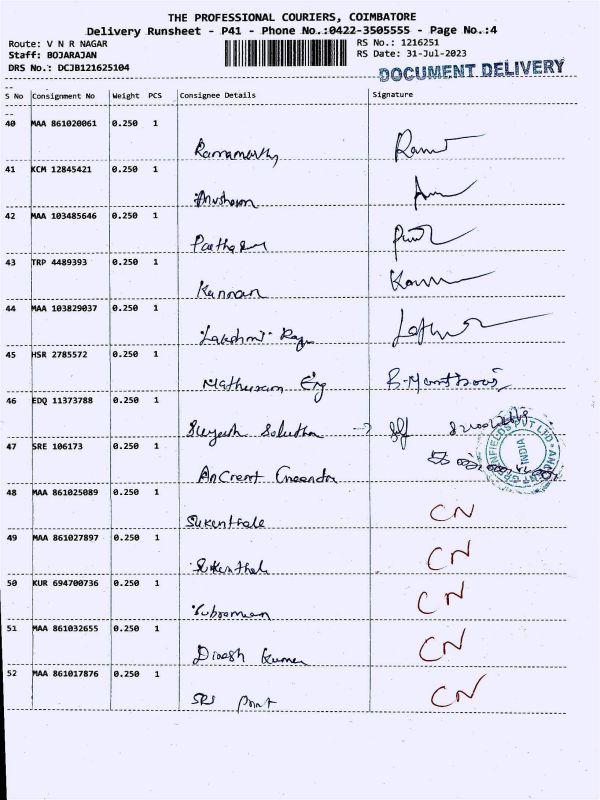 THE PROFESSIONAL COURIERS, COIMBATORE
Delivery Runsheet - P41 - Phone No.:0422-3505555 - Page No.:4
Route: V N R NAGAR RS No.: 1216251
Staff: BOJARAJAN RS Date: 31-Jul-2023
DRS No.: DCJB121625104 DOCUMENT DELIVERY
S No Consignment No Weight PCS Consignee Details Signature
40 MAA 861020061 0.250 1
Ramamurthy
41 KCM 12845421 0.250 1
42 MAA 103485646 0.250 1
43 TRP 4489393 0.250 1
Kannan
44 MAA 103829037 0.250 1
Lakshmi Raju
45 HSR 2785572 0.250 1
46 EDQ 11373788 0.250 1
47 SRE 106173 0.250 1
ANCIENT GREENFIELDS PVT LTD
INDIA
48 MAA 861025089 0.250 1
CN
49 MAA 861027897 0.250 1
CN
50 KUR 694700736 0.250 1
CN
51 MAA 861032655 0.250 1
Dinesh Kumar CN
52 MAA 861017876 0.250 1
SRS Point CN